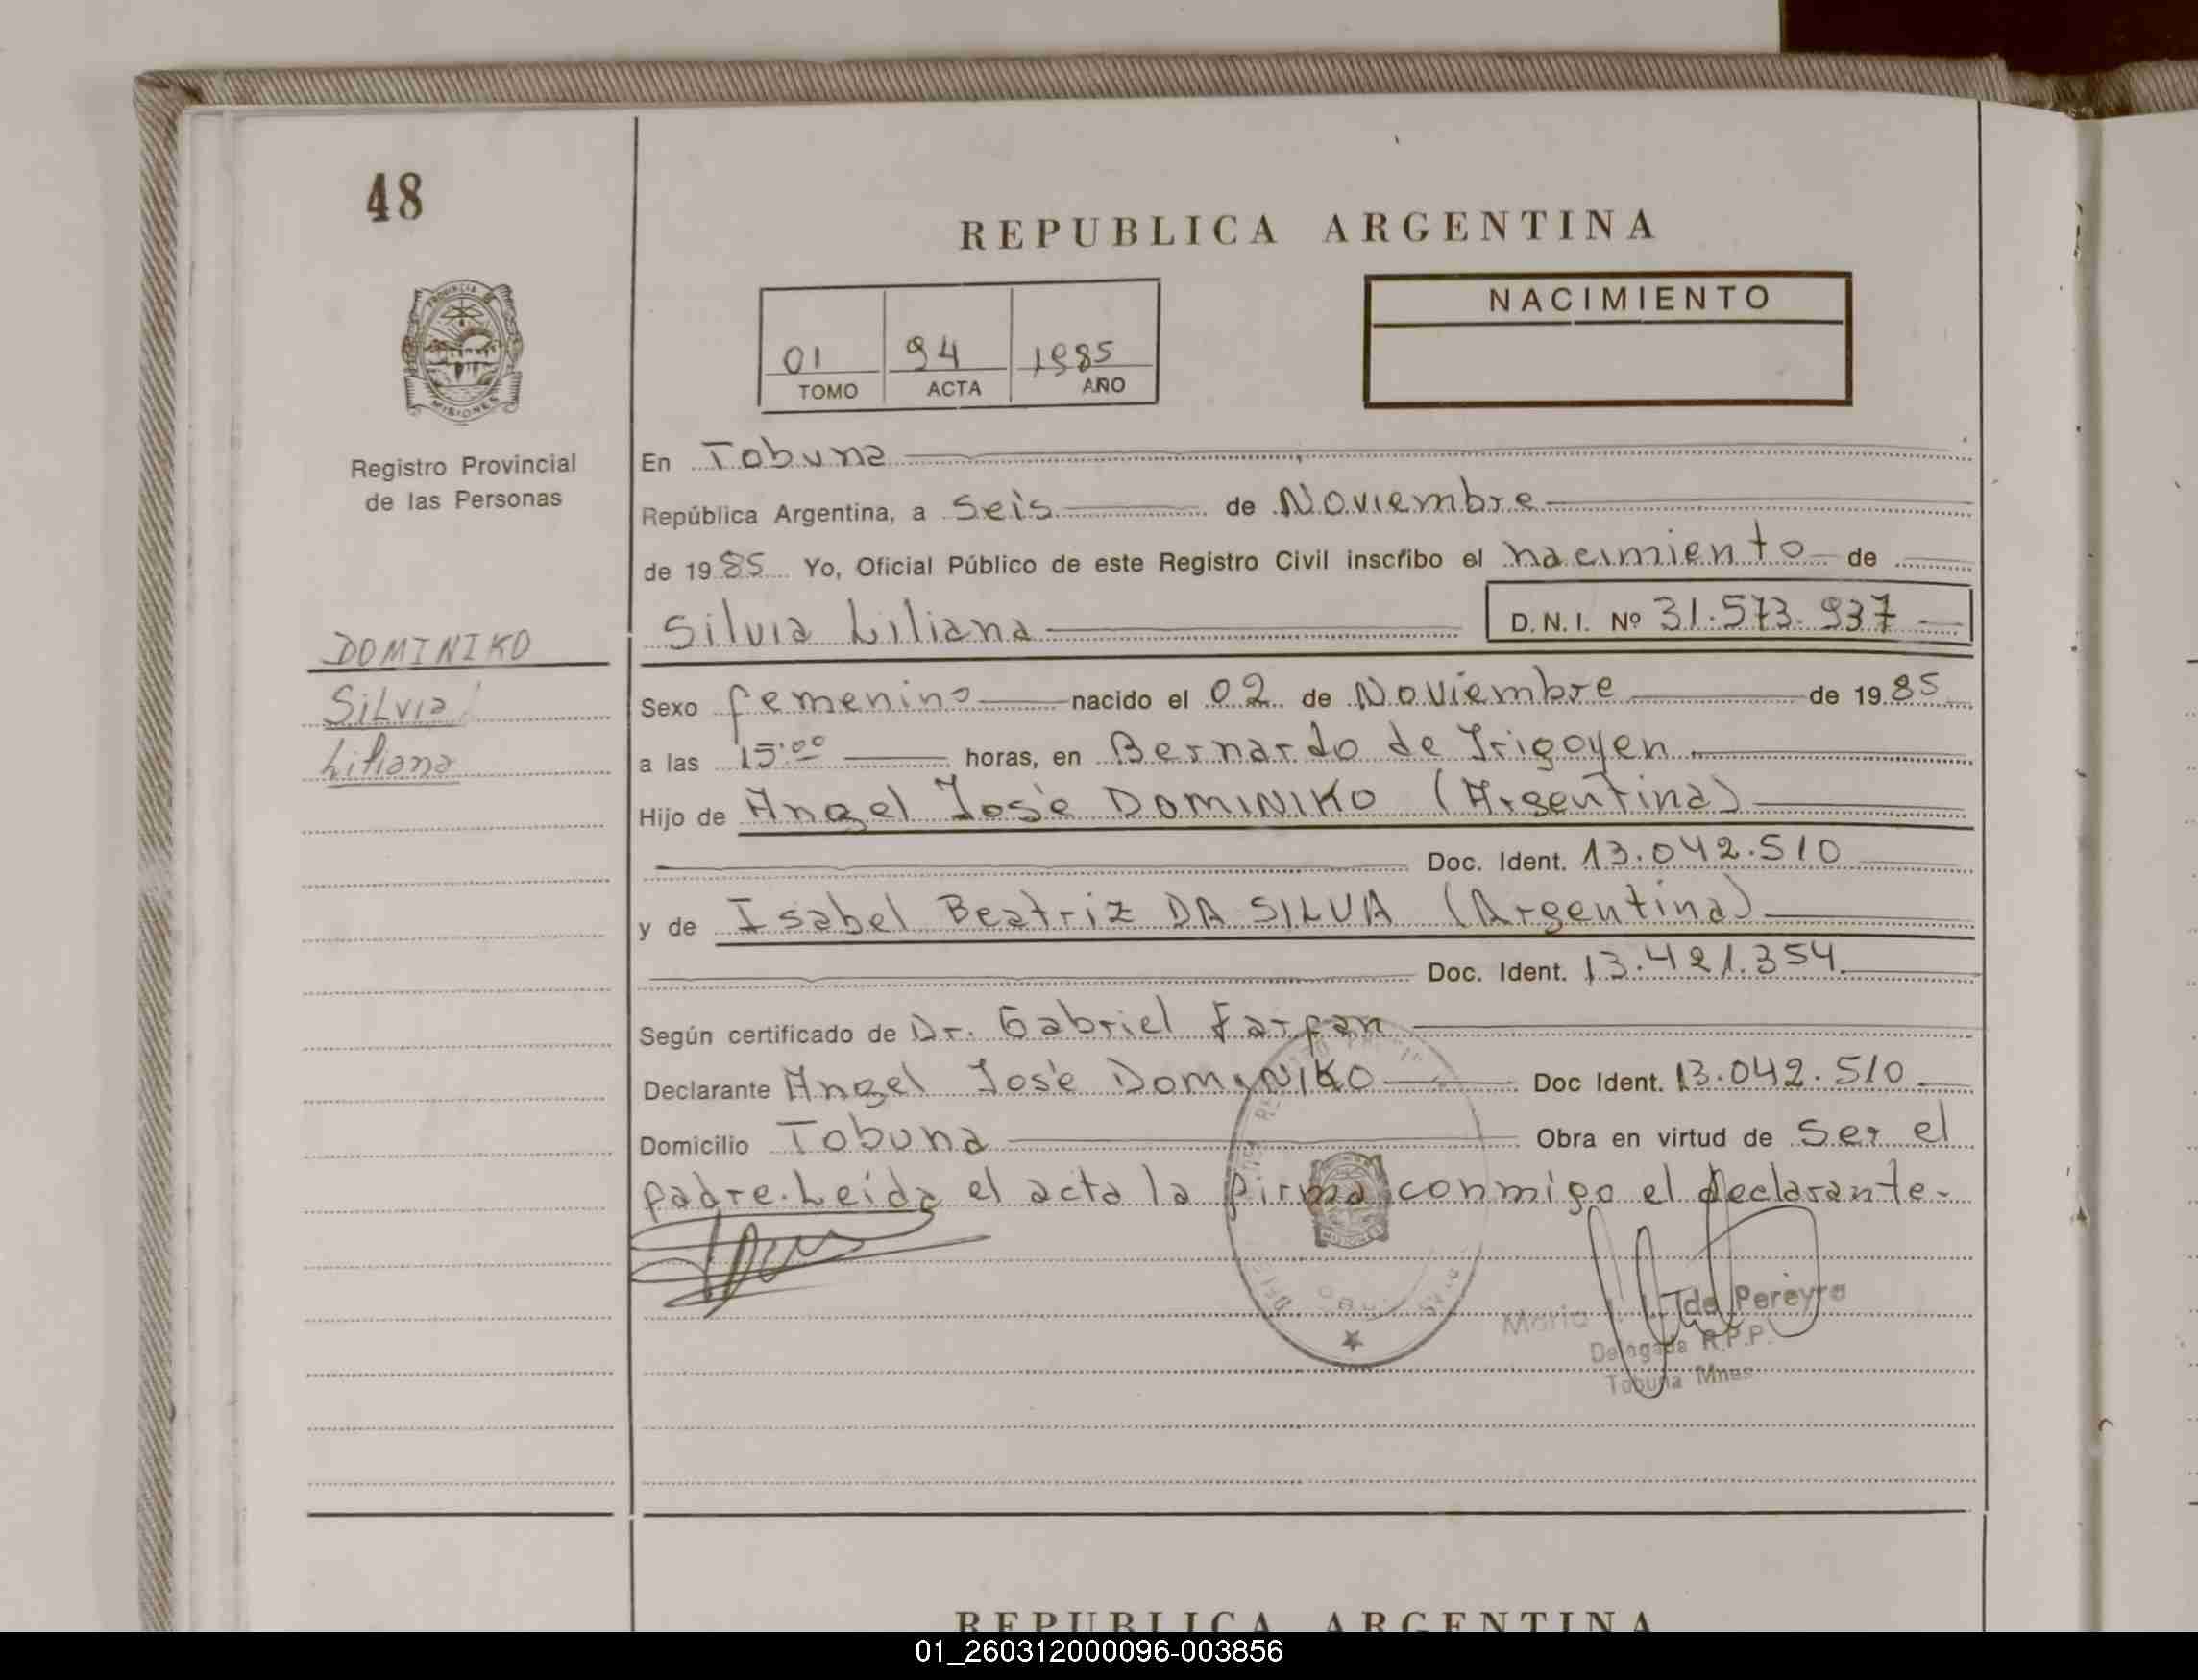 48
REPUBLICA ARGENTINA
NACIMIENTO
01 94 1985
TOMO ACTA AÑO
PROVINCIA DE
MISIONES
Registro Provincial
de las Personas
En Tobuna
República Argentina, a seis de Noviembre
de 1985 Yo, Oficial Público de este Registro Civil inscribo el nacimiento de
Silvia Liliana D.N.I. Nº 31.573.937
DOMINIKO
Silvia
Liliana
Sexo femenino nacido el 02 de Noviembre de 1985
a las 15:00 horas, en Bernardo de Irigoyen
Hijo de Angel José DOMINIKO (Argentina)
Doc. Ident. 13.042.510
y de Isabel Beatriz DA SILVA (Argentina)
Doc. Ident. 13.421.354
Según certificado de Dr. Gabriel Farfan
Declarante Angel José DOMINIKO Doc Ident. 13.042.510
Domicilio Tobuna Obra en virtud de ser el
padre. Leida el acta la firma conmigo el declarante.
MISIONES
Maria Pereyra
Delegada R.P.P.
Tobuna Mnes
REPUBLICA ARGENTINA
01_260312000096-003856